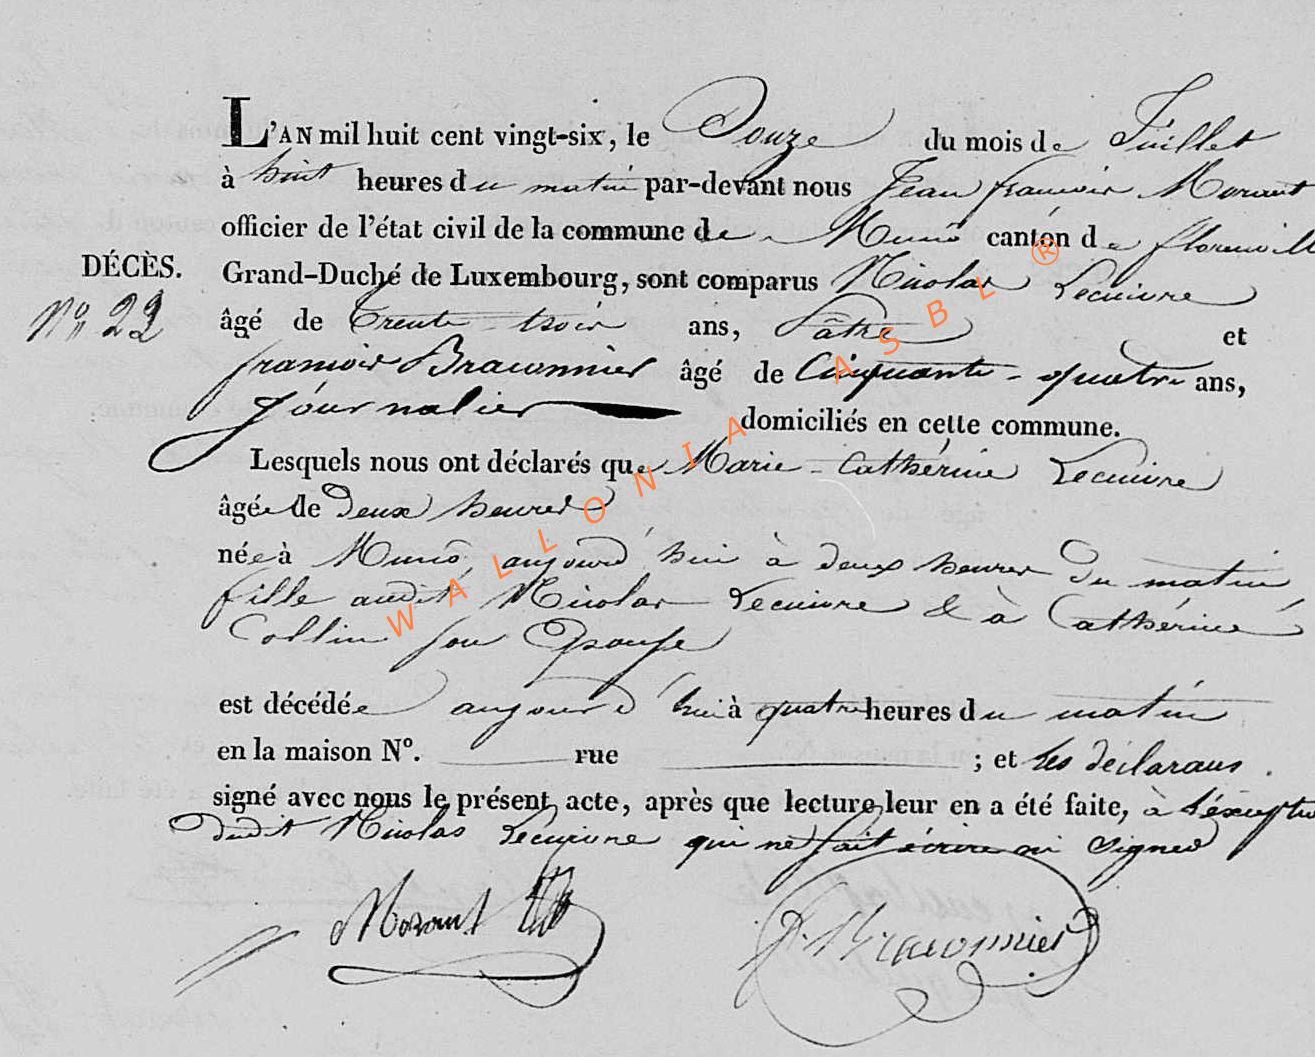 L'AN mil huit cent vingt-six, le Douze du mois de Juillet
à huit heures du matin par-devant nous Jean françois Morant
officier de l'état civil de la commune de Muno canton de florenvill
DÉCÈS.
Grand-Duché de Luxembourg, sont comparus Nicolas Lecuivre
No 22
âgé de trente trois ans, Pâtre et
françois Braconnier âgé de Cinquante-quatre ans,
Journalier domiciliés en cette commune.
Lesquels nous ont déclarés que Marie-Cathérine Lecuivre
âgée de deux heures
née à Muno, aujourd'hui à deux heures du matin
fille audit Nicolas Lecuivre & à Cathérine
Collin son Epouse
est décédée aujourd'hui à quatre heures du matin
en la maison N°. rue ; et les déclarans
signé avec nous le présent acte, après que lecture leur en a été faite, à l'exceptio
dudit Nicolas Lecuivre qui ne sait écrire ni signer
Morant F. Braconnier
WALLONIA ASBL ®